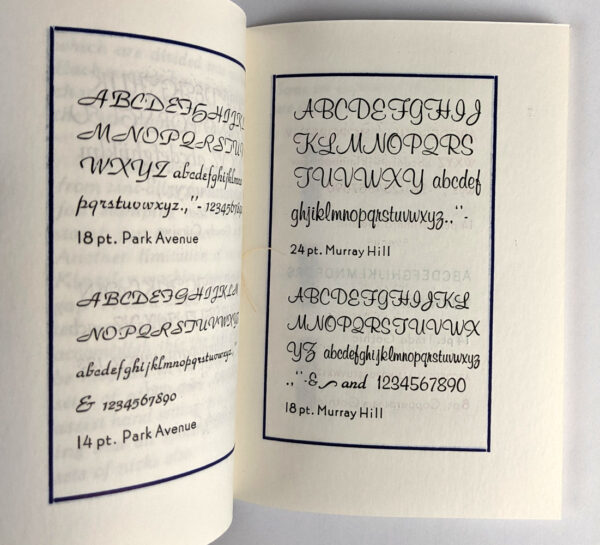 ABCDEFGHIJKL
MNOPQRSTUV
WXYZ abcdefghijklmno
pqrstuvwxyz.,''- 1234567890
18 pt. Park Avenue
ABCDEFGHIJKLM
NOPQRSTUVW
abcdefghijklmnopqrstuvwxyz.,
& 1234567890
14 pt. Park Avenue
ABCDEFGHIJ
KLMNOPQRS
TUVWXY abcdef
ghijklmnopqrstuvwxyz.,‘’-
24 pt. Murray Hill
ABCDEFGHIJKL
MNOPQRSTUVWX
YZ abcdefghijklmnopqrstuvwxyz
.,‘’-&~ and 1234567890
18 pt. Murray Hill